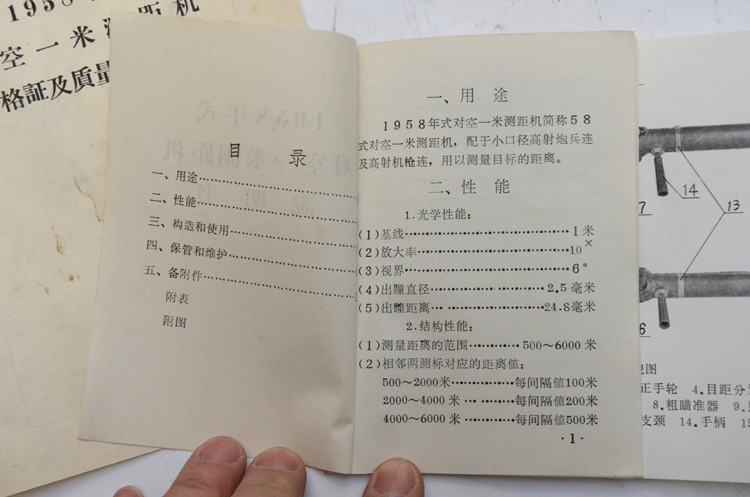 1958
空一米测距机
格証及质量
目 录
一、用途
二、性能
三、构造和使用
四、保管和维护
五、备附件
附表
附图
一、用 途
1958年式对空一米测距机简称58
式对空一米测距机，配于小口径高射炮兵连
及高射机枪连，用以测量目标的距离。
二、性 能
1.光学性能：
(1)基线1米
(2)放大率10×
(3)视界6°
(4)出瞳直径2.5毫米
(5)出瞳距离24.8毫米
2.结构性能：
(1)测量距离的范围500～6000米
(2)相邻两测标对应的距离值：
500～2000米每间隔值100米
2000～4000米每间隔值200米
4000～6000米每间隔值500米
·1·
14
13
7
6
图
正手轮 4.目距分
8.粗瞄准器 9.
支颈 14.手柄